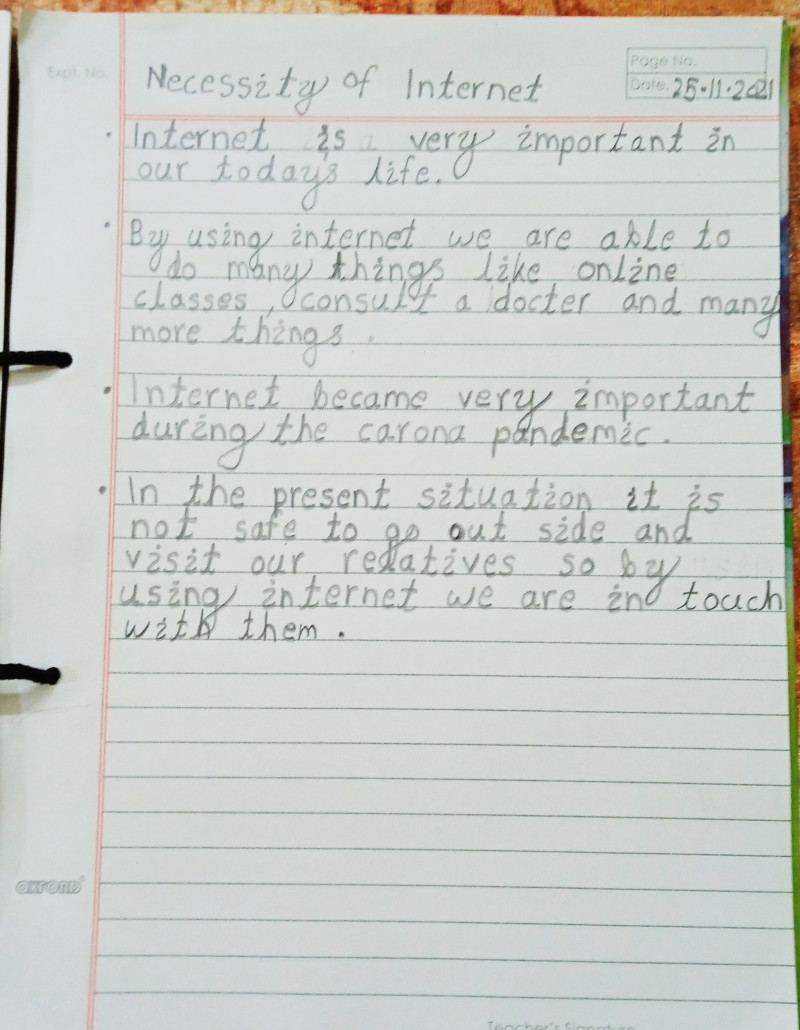 Expt. No.
Page No.
Necessity of Internet
Date. 25.11.2021
• Internet is very important in
our today's life.
• By using internet we are able to
do many things like online
classes, consult a docter and many
more things.
• Internet became very important
during the carona pandemic.
• In the present situation it is
not safe to go out side and
visit our relatives so by
using internet we are in touch
with them.
Teacher's Signature